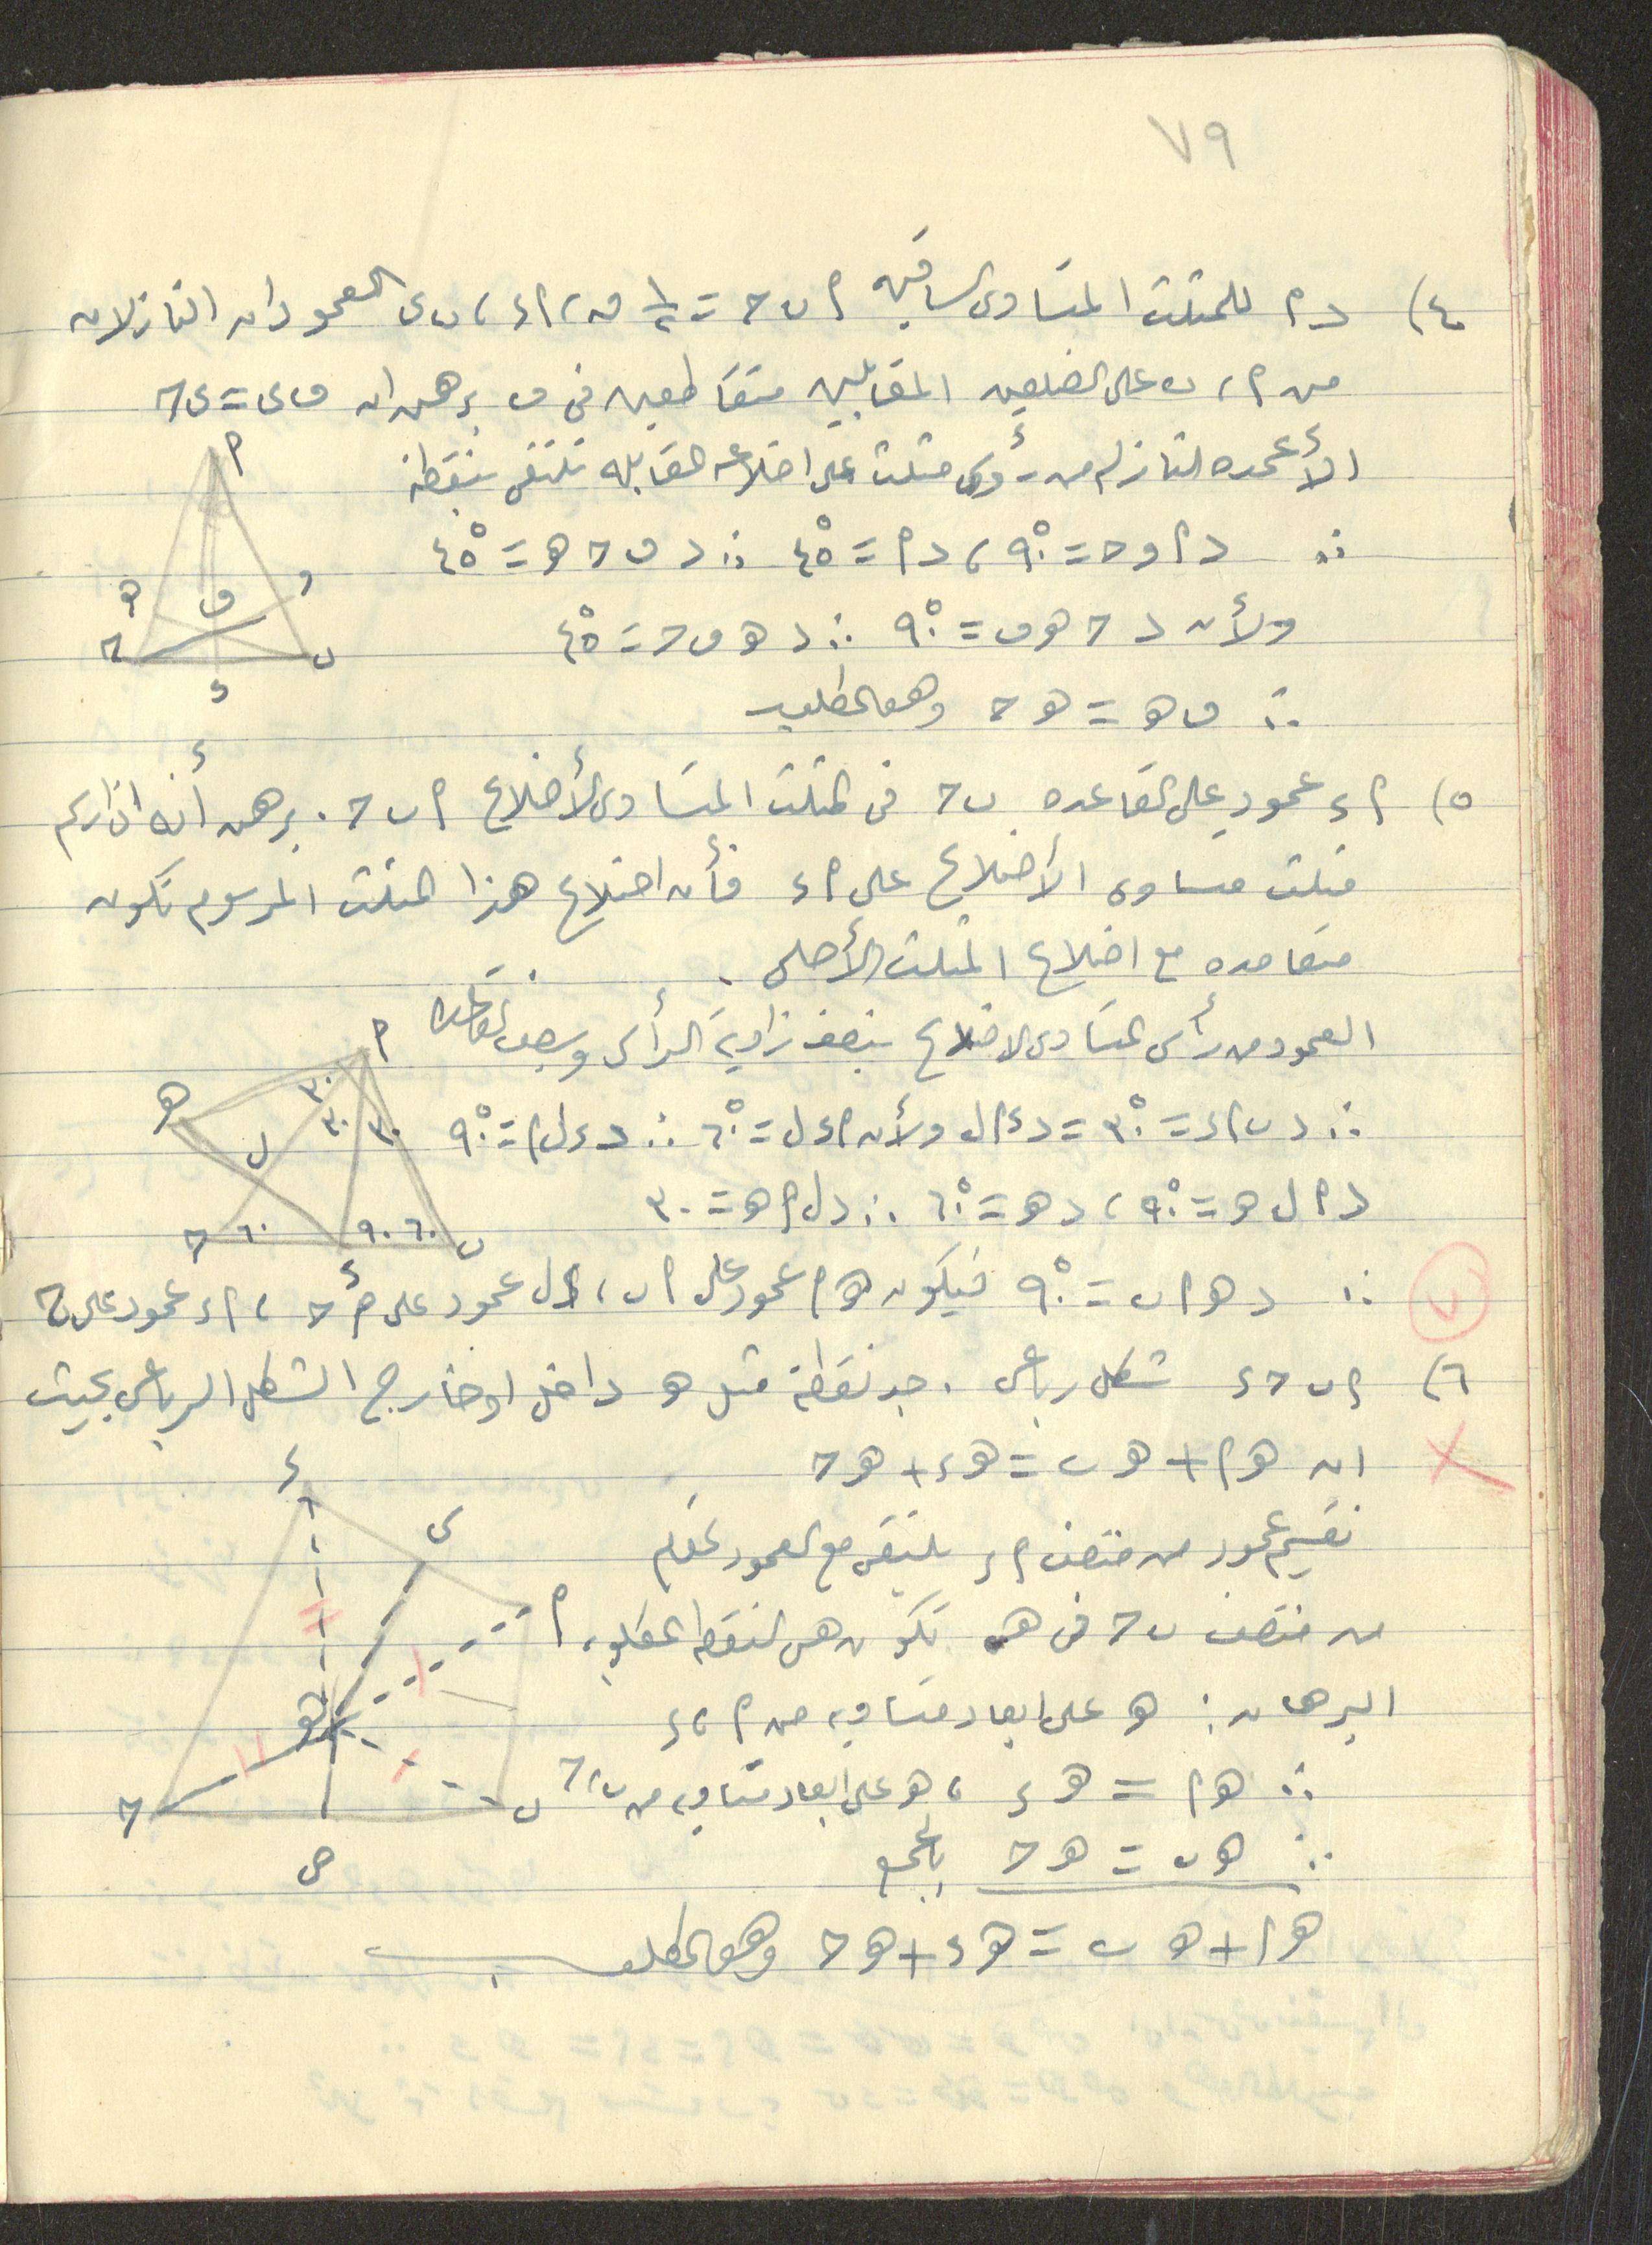 ٧٩
٤) د م للمثلث المتساوى الساقين م ب ح = ١/٢ ق، م ء، ب ى العمودان النازلان
من م، ب على الضلعين المقابلين متقاطعين فى ف برهن ان ف ى = ى ح
الأعمده النازلم من رؤوس مثلث على اضلاعه المقابله تلتقى بنقطة
∴ د م و ح = ٩٠°، د م = ٤٥° ∴ د ف ح ه = ٤٥°
ولأن د ح ه ف = ٩٠° ∴ د ه ف ح = ٤٥°
∴ ف ه = ه ح وهو المطلوب
م
و
ه
ف
ح
ب
ء
٥) م ء عمود على القاعده ب ح فى المثلث المتساوى الأضلاع م ب ح. برهن أنه اذا رسم
مثلث مساوى الأضلاع على م ء فأن اضلاع هذا المثلث المرسوم تكون
متعامده مع اضلاع المثلث الأصلى.
العمود من رأس المتساوى الاضلاع ينصف زاوية الرأس وينصف القاعدة
∴ د ب م ء = ٣٠° = د ء م ل ولأن م ء ل = ٦٠° ∴ د ء ل م = ٩٠°
د م ل ه = ٩٠°، د ه = ٦٠° ∴ د ل م ه = ٣٠
∴ د ه م ب = ٩٠° فيكون ه م عمود على م ب، ء ل عمود على م ح، م ء عمود على ب ح
م
ه
٣٠
٣٠
٣٠
ل
ح
٦٠
٩٠
٦٠
ب
ء
٦) م ب ح ء شكل رباعى. جد نقطة مثل ه داخل او خارج الشكل الرباعى بحيث
ان ه م + ه ب = ه ء + ه ح
نقيم عمود من منتصف م ء يلتقى مع العمود المقام
من منتصف ب ح فى ه تكون هى النقطه المطلوبه
البرهان: ه على ابعاد متساويه من م، ء
∴ ه م = ه ء، ه على ابعاد متساويه من ب، ح
∴ ه ب = ه ح بالجمع
ه م + ه ب = ه ء + ه ح وهو المطلوب
ء
ى
م
ه
ح
ب
ص